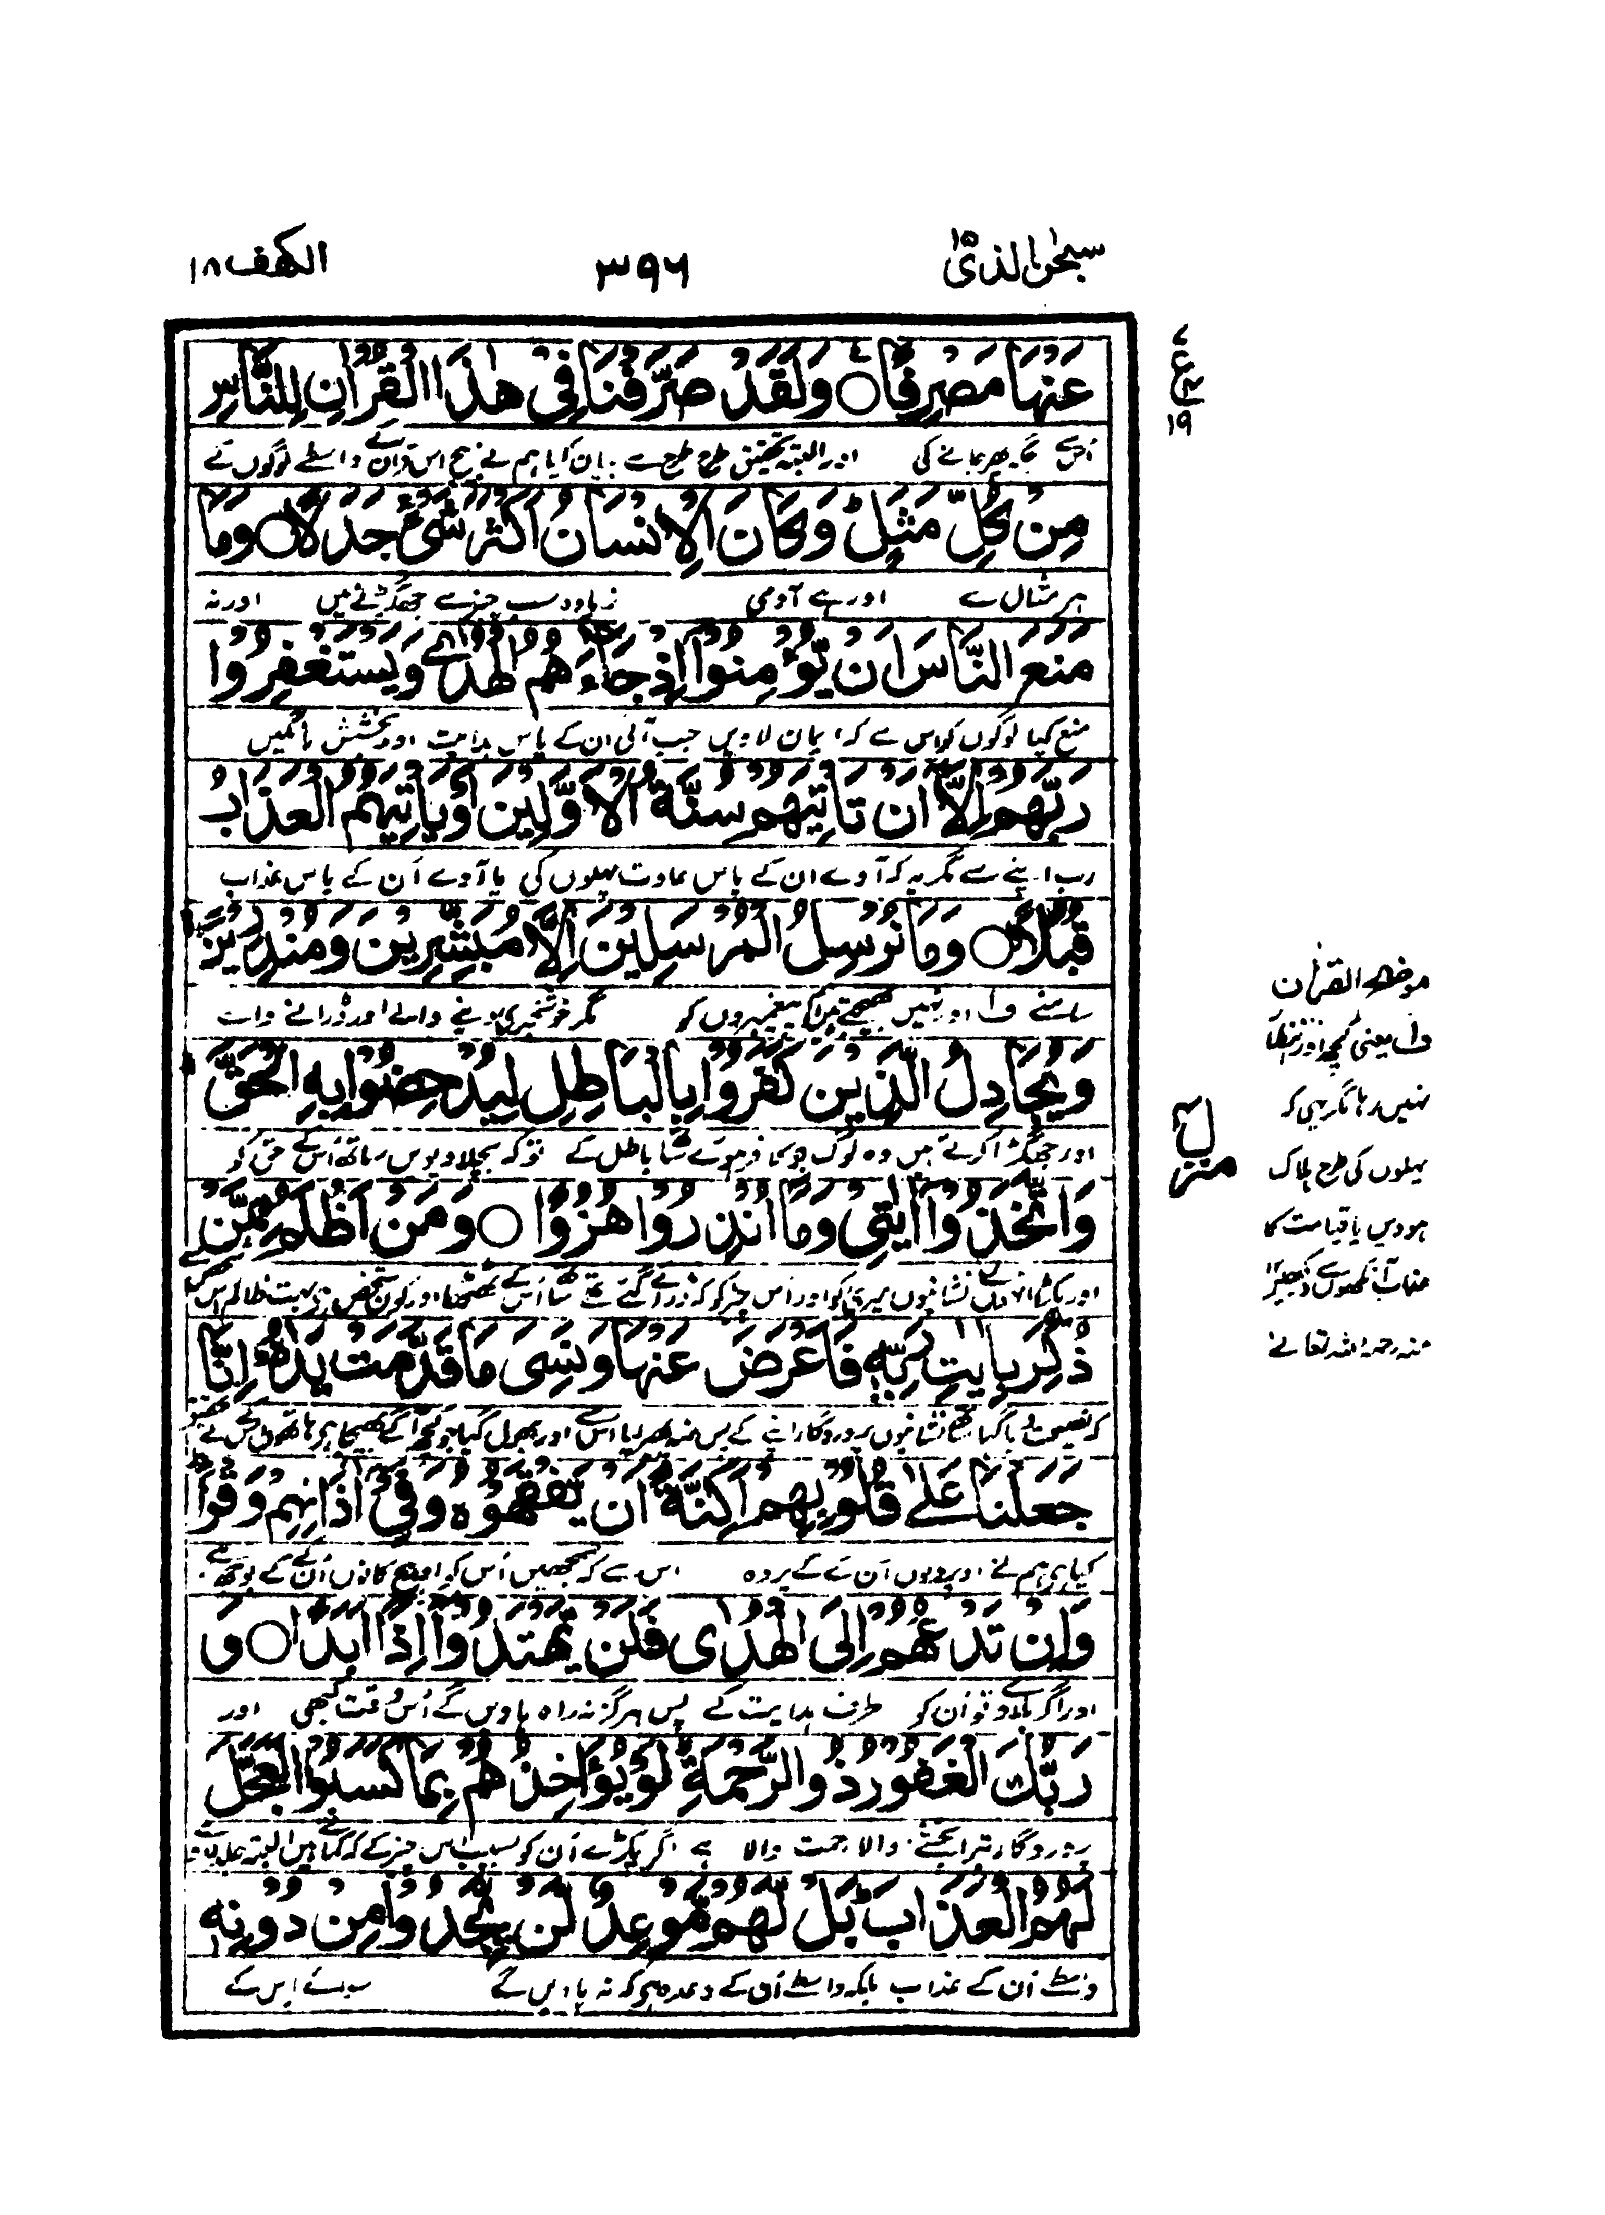 سبحٰن الذی ۱۵
۳۹۶
الکھف ۱۸
عَنْهَا مَصْرِفًا ○ وَلَقَدْ صَرَّفْنَا فِي هٰذَا الْقُرْاٰنِ لِلنَّاسِ
اُس سے جگہ پھر جانے کی اور البتہ تحقیق طرح طرح سے بیان کیا ہم نے بیچ اس قرآن کے واسطے لوگوں کے
مِنْ كُلِّ مَثَلٍ ؕ وَكَانَ الْاِنْسَانُ اَكْثَرَ شَيْءٍ جَدَلًا ○ وَمَا
ہر مثال سے اور ہے آدمی زیادہ سب چیز سے جھگڑنے میں اور نہ
مَنَعَ النَّاسَ اَنْ يُّؤْمِنُوْٓا اِذْ جَآءَهُمُ الْهُدٰى وَيَسْتَغْفِرُوْا
منع کیا لوگوں کو اس سے کہ ایمان لاویں جب آئی ان کے پاس ہدایت اور بخشش مانگیں
رَبَّهُمْ اِلَّآ اَنْ تَاْتِيَهُمْ سُنَّةُ الْاَوَّلِيْنَ اَوْ يَاْتِيَهُمُ الْعَذَابُ
رب اپنے سے مگر یہ کہ آوے ان کے پاس عادت پہلوں کی یا آوے اُن کے پاس عذاب
قُبُلًا ○ وَمَا نُرْسِلُ الْمُرْسَلِيْنَ اِلَّا مُبَشِّرِيْنَ وَمُنْذِرِيْنَ ۚ
سامنے ف۱ اور نہیں بھیجتے ہم پیغمبروں کو مگر خوشخبری دینے والے اور ڈرانے والے
وَيُجَادِلُ الَّذِيْنَ كَفَرُوْا بِالْبَاطِلِ لِيُدْحِضُوْا بِهِ الْحَقَّ
اور جھگڑا کرتے ہیں وہ لوگ جو کافر ہوئے ساتھ باطل کے تو کہ بچلا دیویں ساتھ اُس کے حق کو
وَاتَّخَذُوْٓا اٰيٰتِيْ وَمَآ اُنْذِرُوْا هُزُوًا ○ وَمَنْ اَظْلَمُ مِمَّنْ
اور پکڑا انہوں نے نشانیوں میری کو اور اُس چیز کو کہ ڈرائے گئے تھے ساتھ اُس کے ٹھٹھا اور کون شخص ہے بہت ظالم اُس شخص سے
ذُكِّرَ بِاٰيٰتِ رَبِّهٖ فَاَعْرَضَ عَنْهَا وَنَسِيَ مَا قَدَّمَتْ يَدٰهُ ؕ اِنَّا
کہ نصیحت دیا گیا ساتھ نشانیوں پروردگار اپنے کے پس منہ پھیر لیا اُس سے اور بھول گیا جو کچھ آگے بھیجا ہے ہاتھوں اس کے نے تحقیق
جَعَلْنَا عَلٰى قُلُوْبِهِمْ اَكِنَّةً اَنْ يَّفْقَهُوْهُ وَفِيْٓ اٰذَانِهِمْ وَقْرًا ؕ
کیا ہے ہم نے اوپر دلوں اُن کے کے پردہ اس سے کہ سمجھیں اُس کو اور بیچ کانوں اُن کے کے بوجھ ہے
وَاِنْ تَدْعُهُمْ اِلَى الْهُدٰى فَلَنْ يَّهْتَدُوْٓا اِذًا اَبَدًا ○ وَ
اور اگر بلاوے تو ان کو طرف ہدایت کے پس ہرگز نہ راہ پاویں گے اُس وقت کبھی اور
رَبُّكَ الْغَفُوْرُ ذُو الرَّحْمَةِ ؕ لَوْ يُؤَاخِذُهُمْ بِمَا كَسَبُوْا لَعَجَّلَ
پروردگار تیرا بخشنے والا رحمت والا ہے اگر پکڑے اُن کو بسبب اُس چیز کے کہ کماتے ہیں البتہ جلد لاوے
لَهُمُ الْعَذَابَ ؕ بَلْ لَّهُمْ مَّوْعِدٌ لَّنْ يَّجِدُوْا مِنْ دُوْنِهٖ
واسطے اُن کے عذاب بلکہ واسطے اُن کے وعدہ ہے کہ نہ پاویں گے سوائے اس کے
ع
۱۹
موضح القرآن
ف۱ یعنی کچھ اور انتظار
نہیں رہا مگر یہی کہ
پہلوں کی طرح ہلاک
ہوویں یا قیامت کا
عذاب آنکھوں سے دیکھیں ۱۲
منہ رحمہ اللہ تعالےٰ
منزل ۴